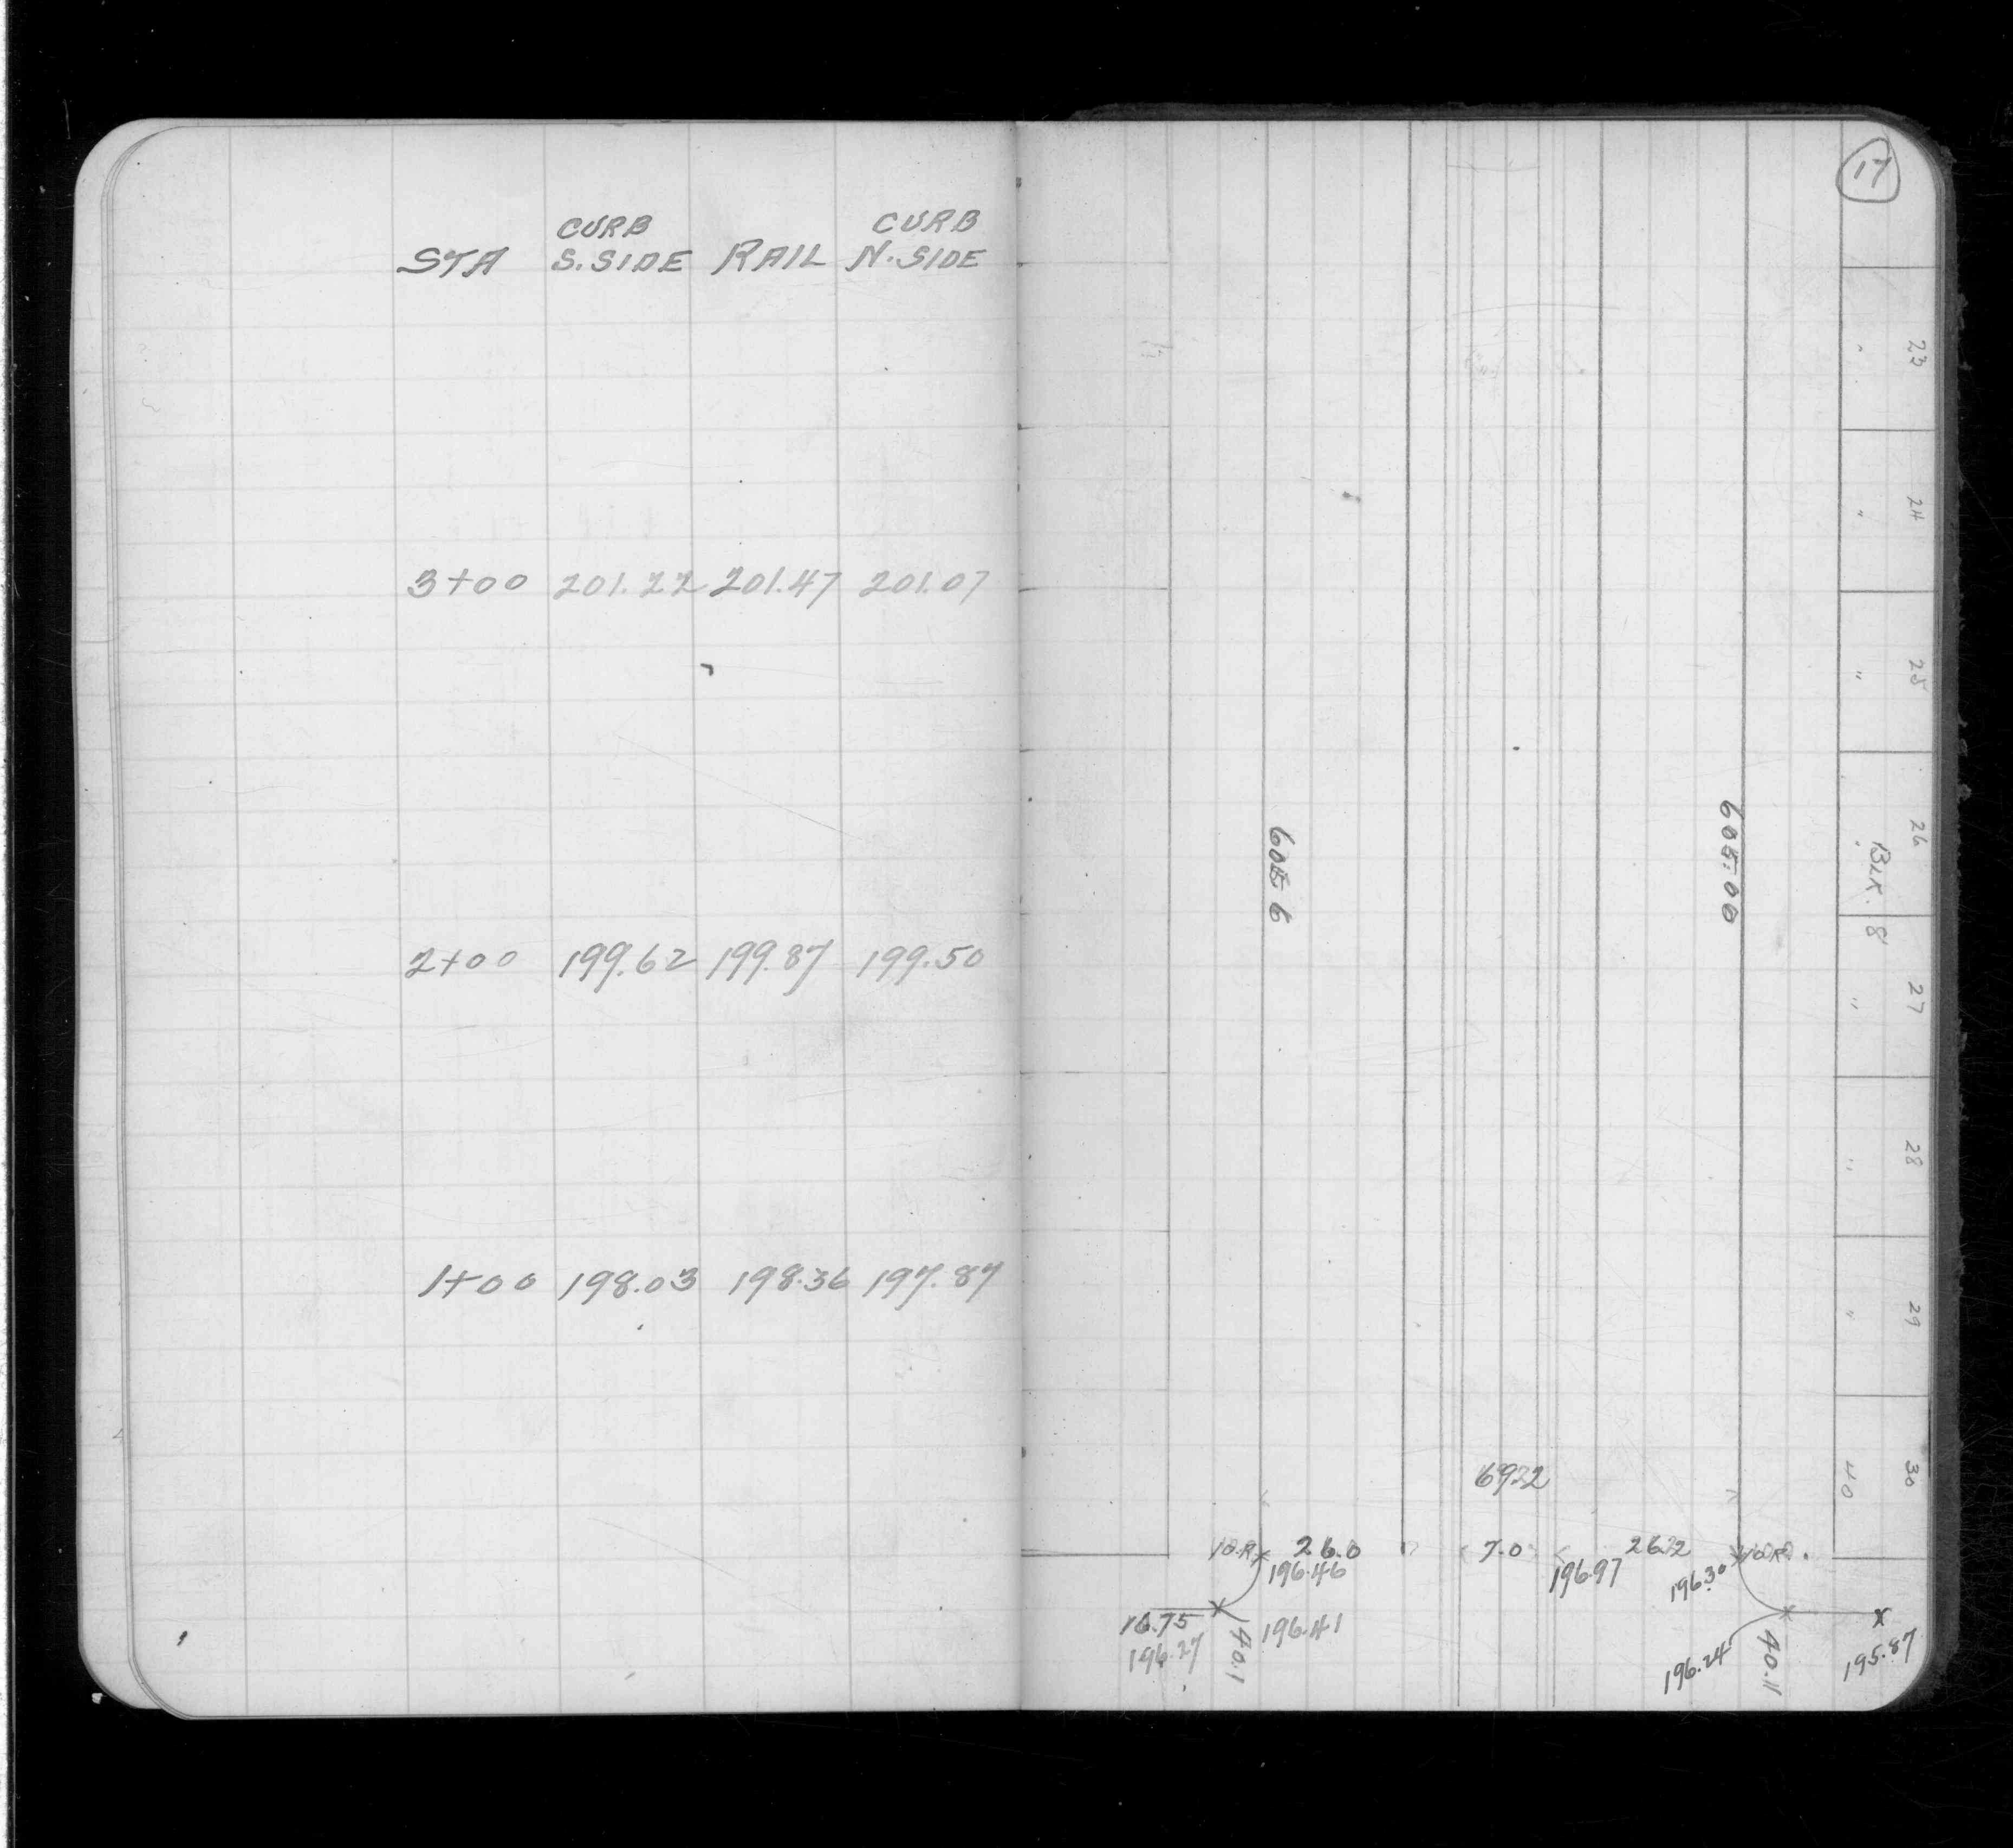 CURB CURB
STA S.SIDE RAIL N.SIDE
3+00 201.22 201.47 201.07
2+00 199.62 199.87 199.50
1+00 198.03 198.36 197.87
17
23
"
24
"
25
"
26
BLK. 8
27
"
28
"
29
"
30
40
605.00
6922
10.R 26.0 7.0 26.2
196.46 196.97 196.30
16.75 196.41
196.27 40.1
196.24 40.11 195.87